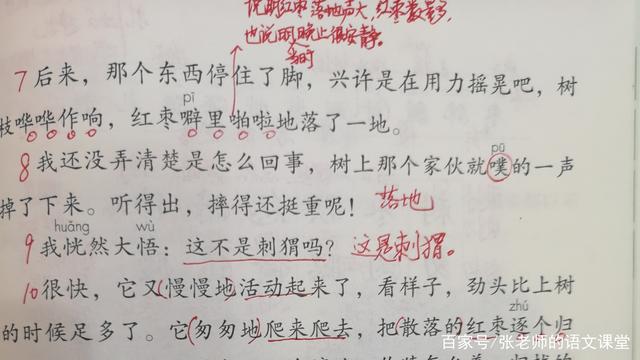 说明红枣落地声大,红枣数量多,
也说明晚上很安静。
当时
7后来,那个东西停住了脚,兴许是在用力摇晃吧,树
pī
枝哗哗作响,红枣噼里啪啦地落了一地。
pū
8我还没弄清楚是怎么回事,树上那个家伙就噗的一声
掉了下来。听得出,摔得还挺重呢! 落地
huǎng wù
9我恍然大悟:这不是刺猬吗? 这是刺猬。
10很快,它又慢慢地活动起来了,看样子,劲头比上树
zhú
的时候足多了。它匆匆地爬来爬去,把散落的红枣逐个归
百家号/张老师的语文课堂